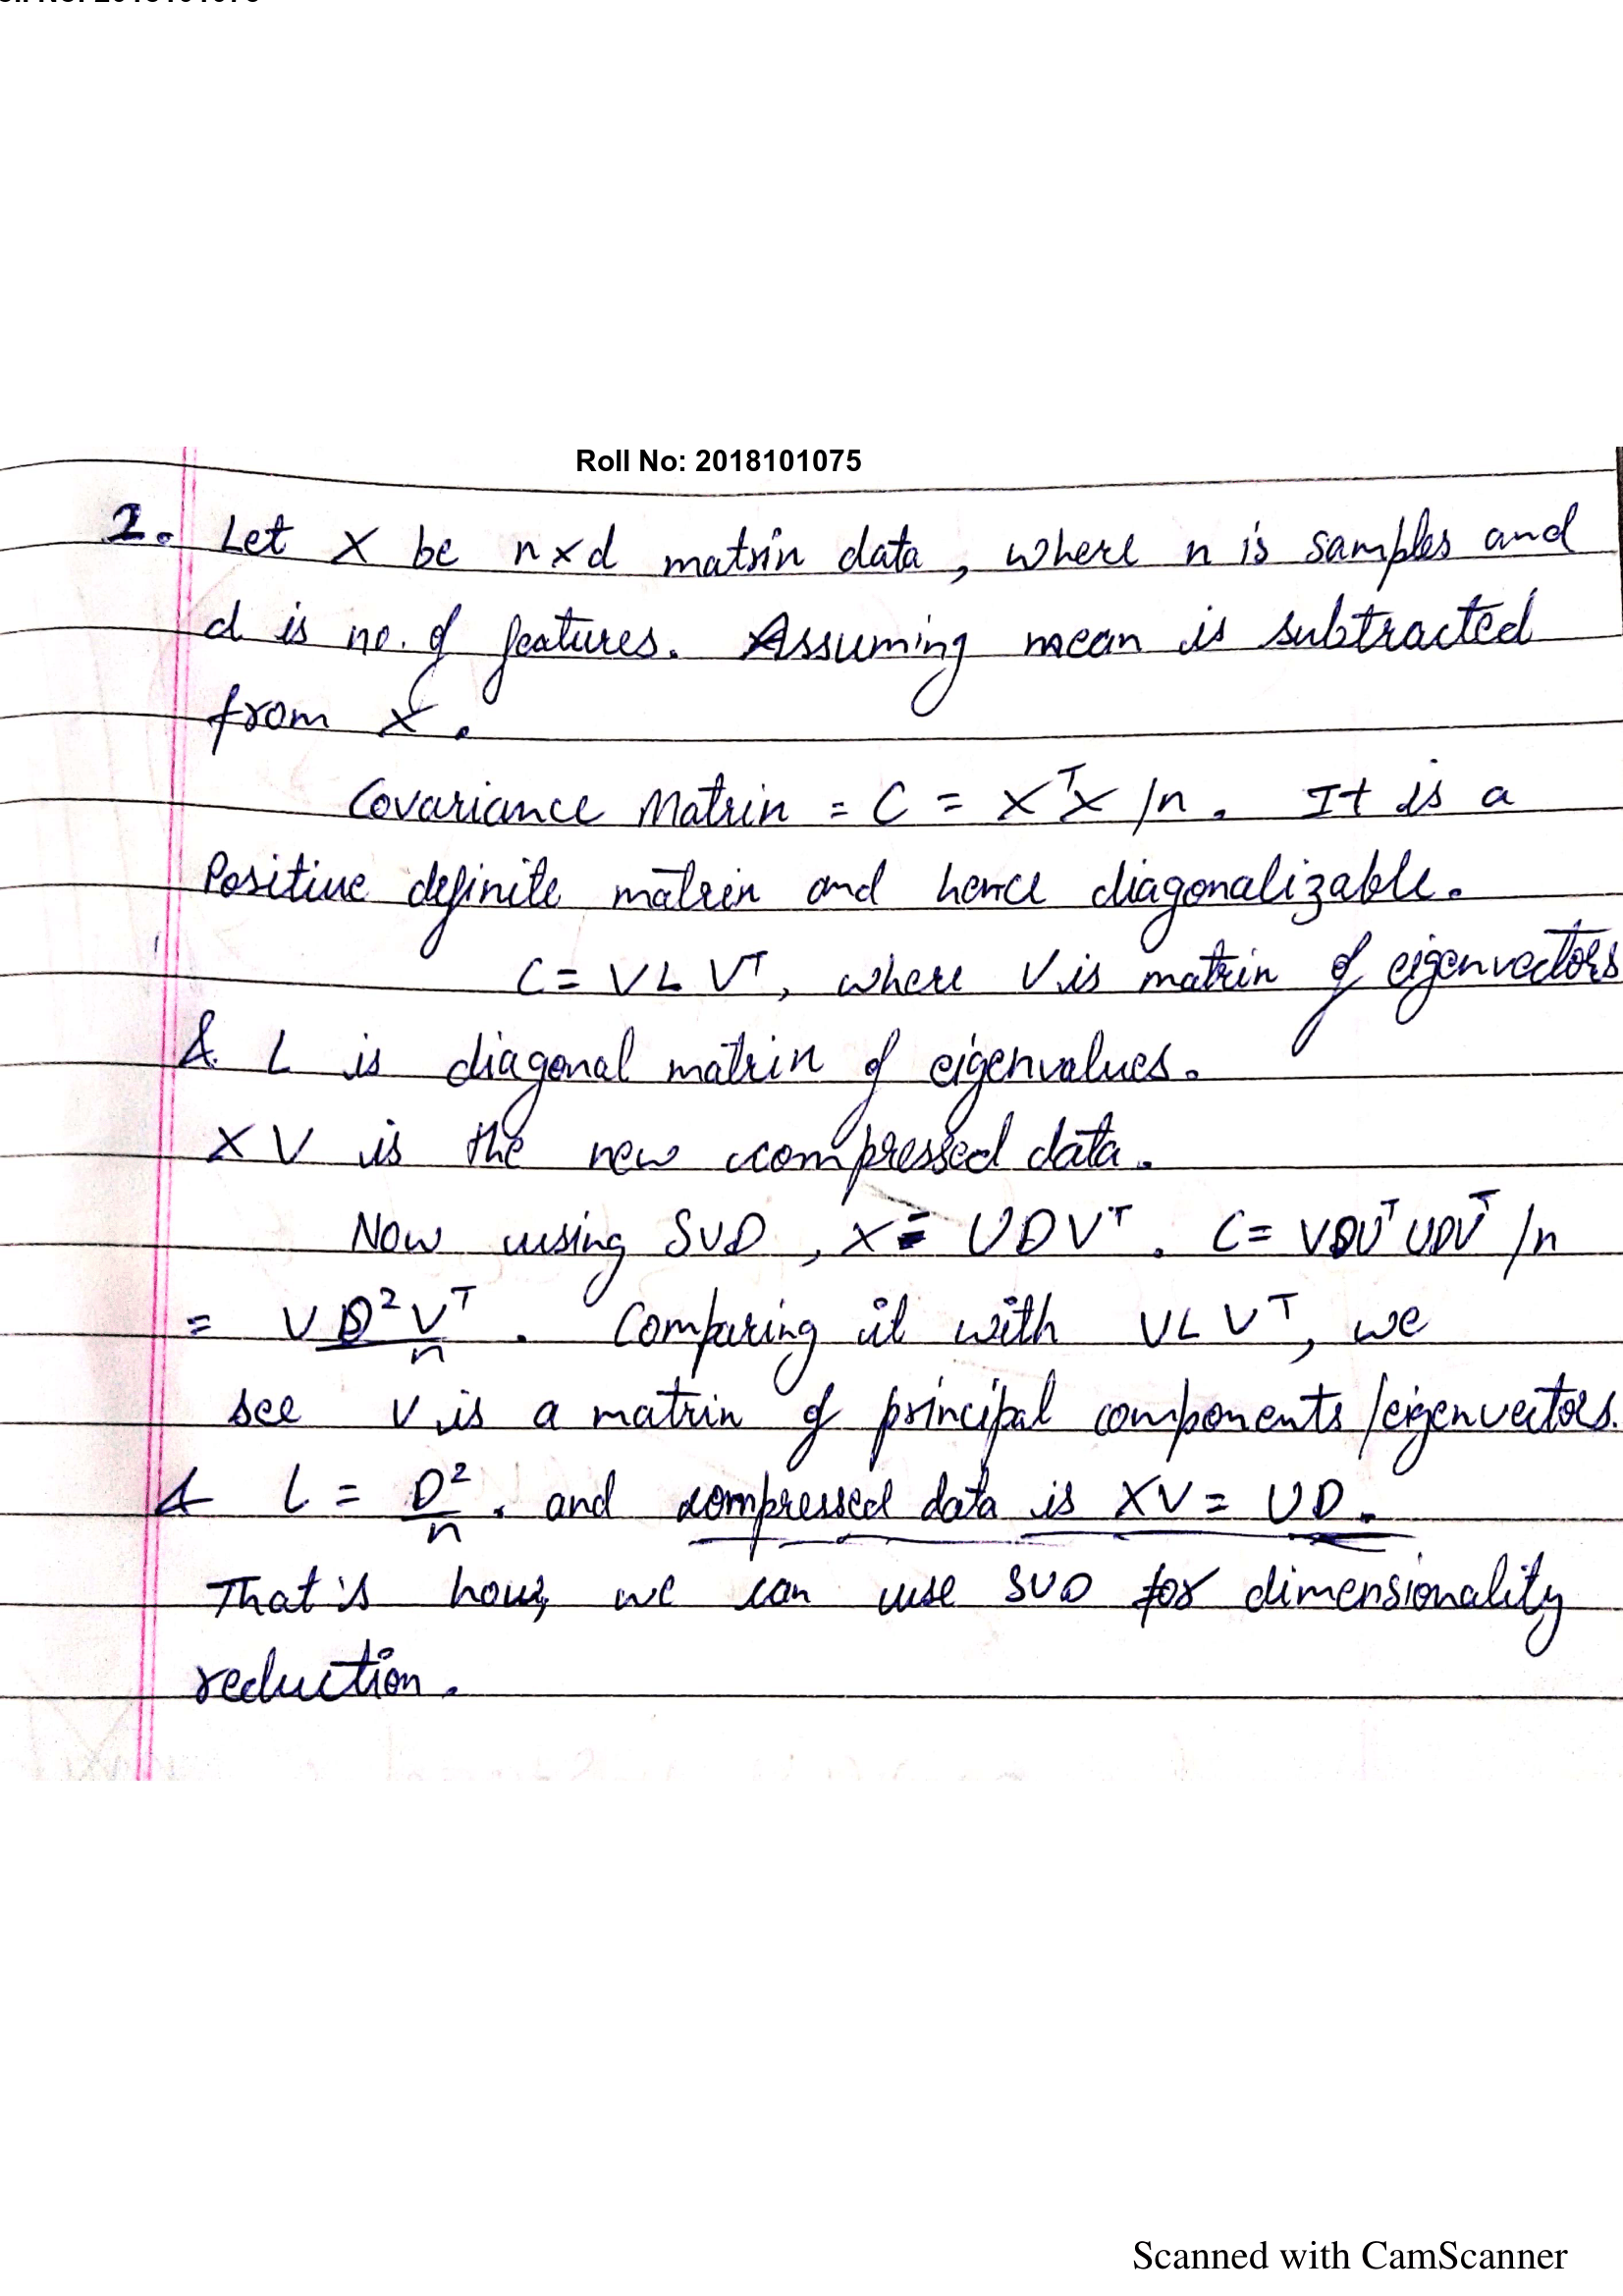 Roll No: 2018101075
2. Let X be n×d matrix data, where n is samples and
d is no. of features. Assuming mean is subtracted
from X.
Covariance Matrix = C = XᵀX/n. It is a
Positive definite matrix and hence diagonalizable.
C = VLVᵀ, where V is matrix of eigenvectors
& L is diagonal matrix of eigenvalues.
XV is the new compressed data.
Now using SVD, X = UDVᵀ. C = VDUᵀUDVᵀ/n
= VD²Vᵀ/n. Comparing it with VLVᵀ, we
see V is a matrix of principal components/eigenvectors.
& L = D²/n. and compressed data is XV = UD.
That's how, we can use SVD for dimensionality
reduction.
Scanned with CamScanner